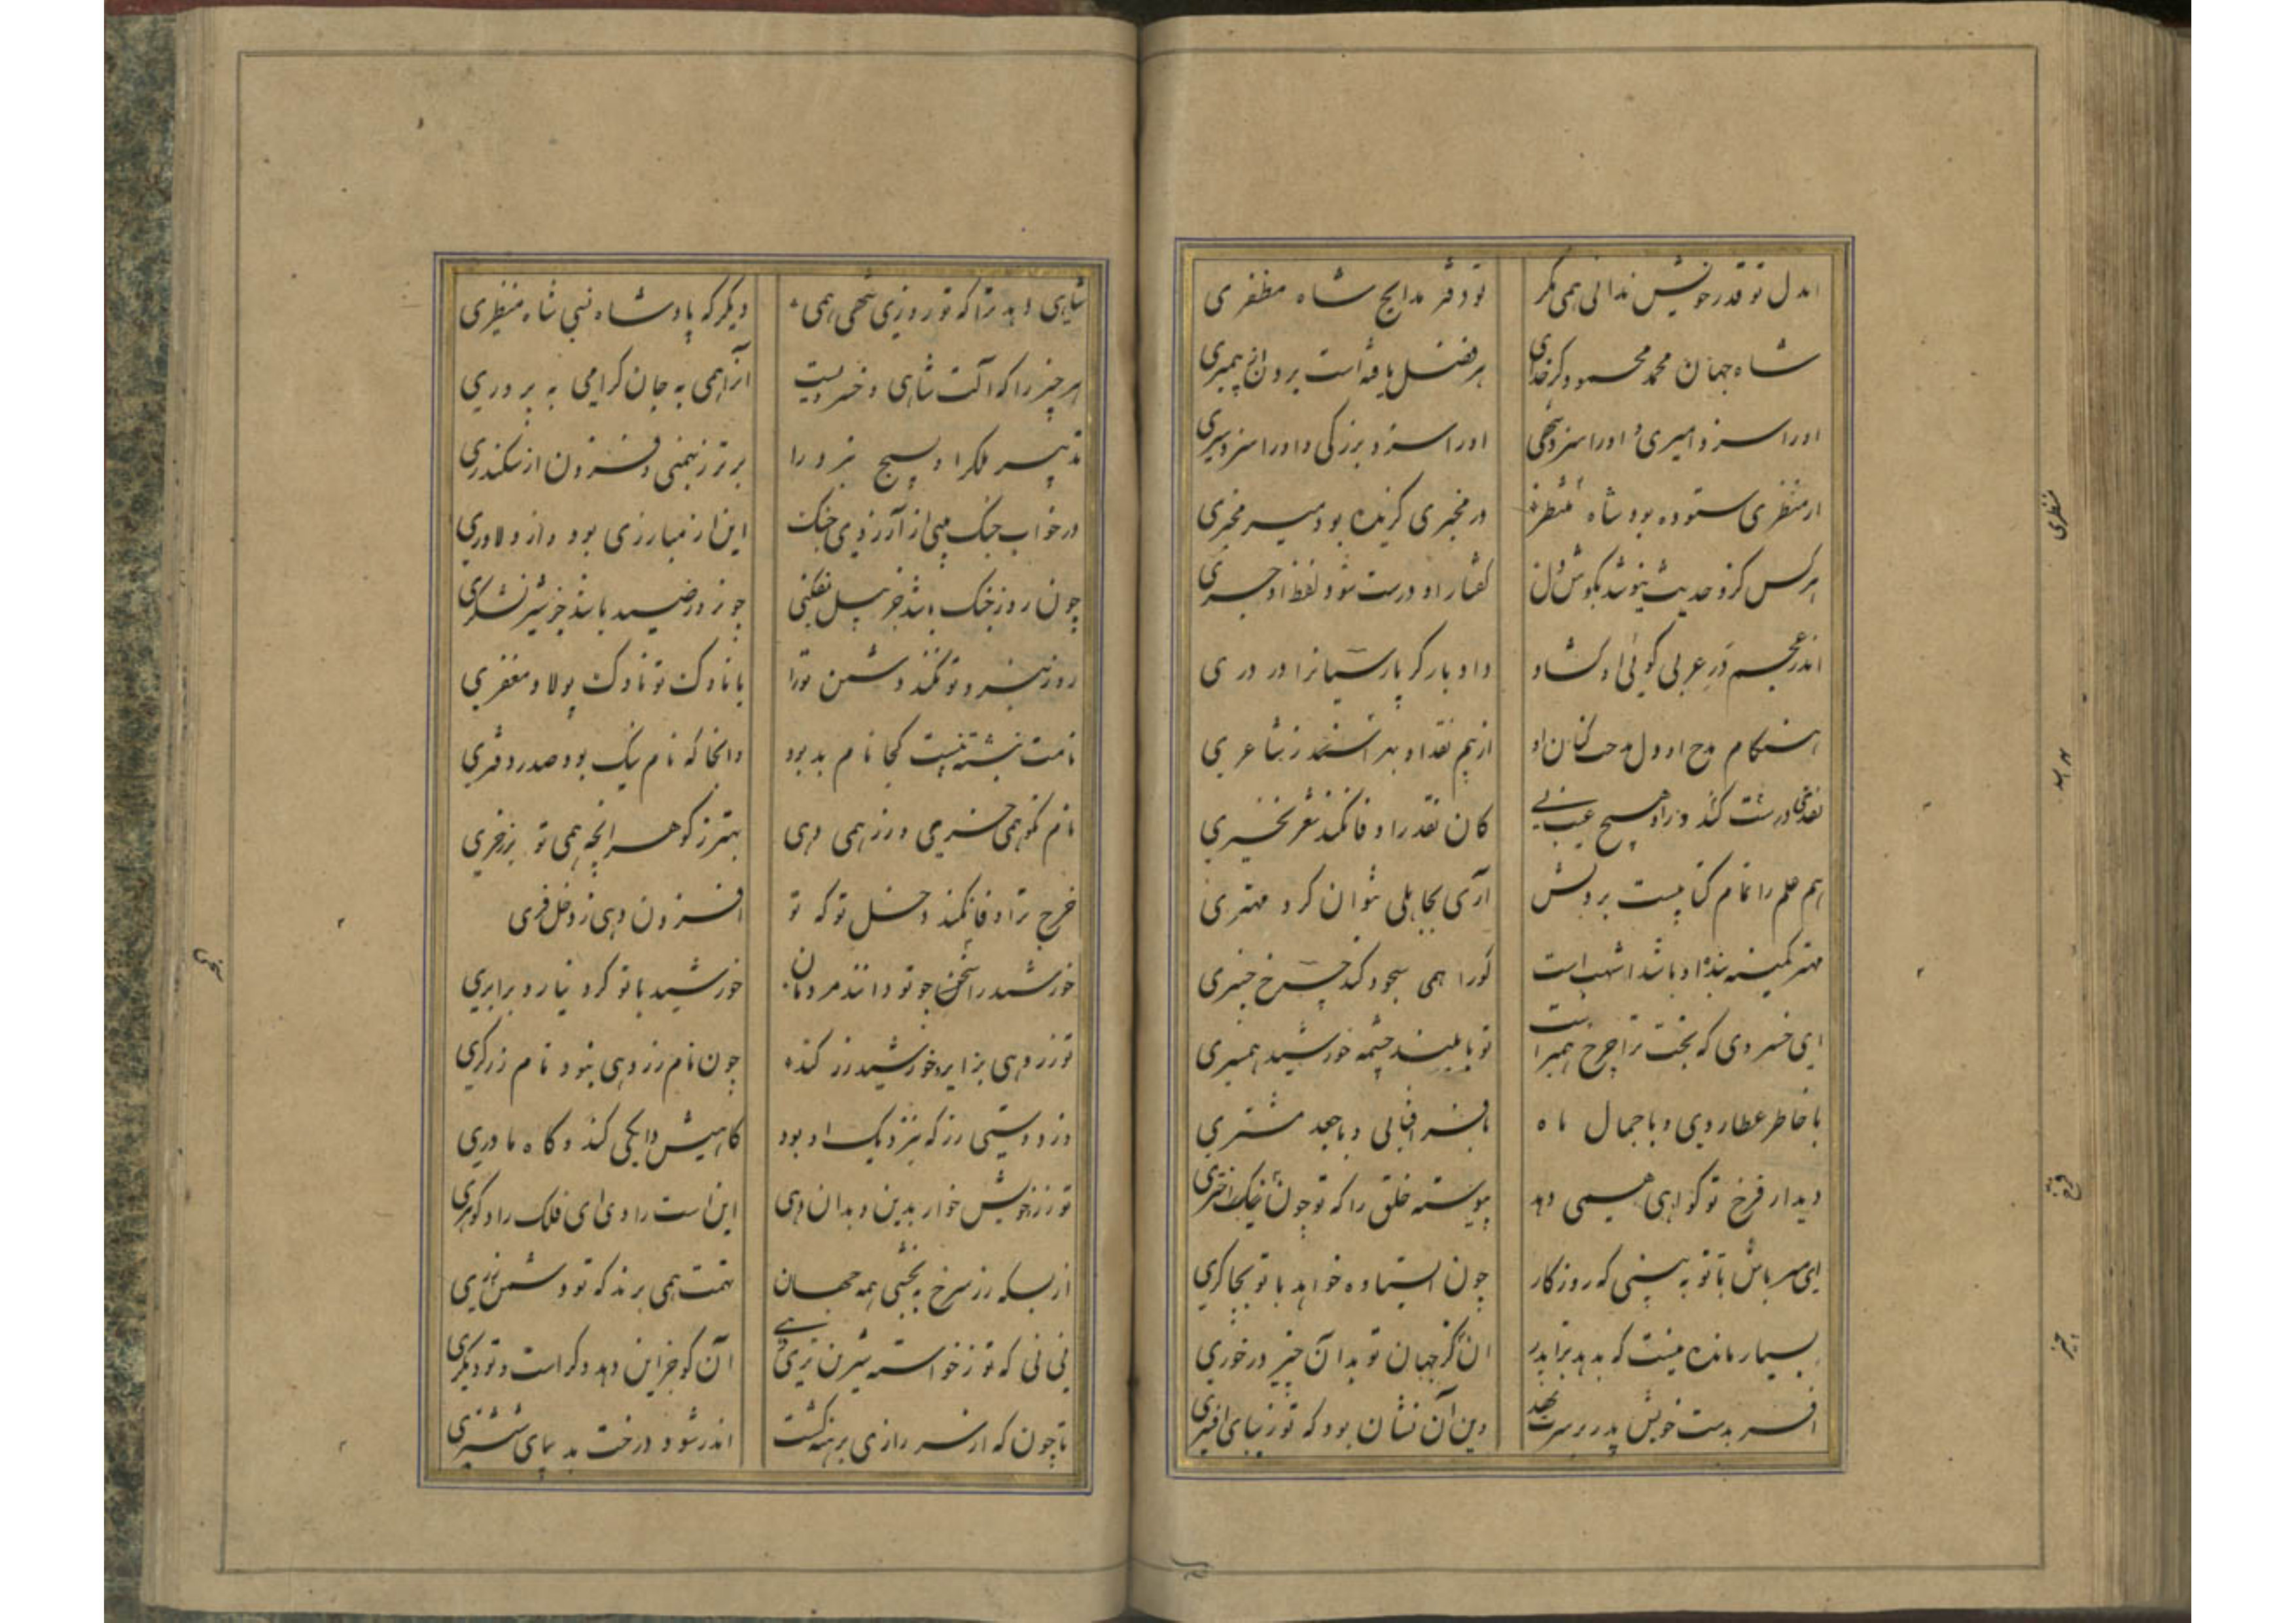 ایدل تو قدر خویش ندانی همی مکر
تو دفتر مدایح شاه مظفری
شاه جهان محمد محمود کز خدای
هر فضل یافته است برون از پیمبری
اورا سزد امیری و اورا سزد شهی
اورا سزد بزرکی و اورا سزد سری
از منظری ستوده بود شاه منظر
در مخبری کزیده بود میر مخبری
هر کس کزو حدیث نیوشد بکوش دل
کفتار او درست شود لفظ او جری
اندر عجم در عربی کوئی او کشاد
داد بار کر پارسیانرا در دری
هنکام مدح او دل مدحت کنان او
از بیم نقد او بهراسند ز شاعری
نقدی درشت کند و زو هیچ عیب نی
کان نقد را وفا نکند شعر بحتری
هم علم را تمام کتابیست بر دلش
آری بجاهلی نتوان کرد مهتری
مهتر کمینه بنده او باشد اشهب است
کورا همی سجود کند چرخ چنبری
ای خسروی که بخت ترا چرخ همبر است
تو با بلند چشمه خورشید همسری
با خاطر عطاردی و با جمال ماه
با فر آفتابی و با جهد مشتری
دیدار فرخ تو کواهی همی دهد
پیوسته خلق را که تو چون نیک اختری
ای میر باش تا تو به بینی که روزکار
چون ایستاده خواهد با تو بچاکری
بسیار مانده نیست که بدهد ترا پدر
ان کز جهان تو بدان چیز درخوری
افسر بدست خویش پدر بر سرت نهد
وین آن نشان بود که تو زیبای افسری
شاهی دهد ترا که تو روزی شهی همی
دیکر که پادشاه نبی شاه منظری
هر چیز را که آلت شاهی و خسرویست
آنرا همی به جان کرامی به پروری
تدبیر ملک را و بسیج نبرد را
برتر ز بهمنی و فزون از سکندری
در خواب جنک بینی از آرزوی جنک
این از مبارزی بود و از دلاوری
چون روز جنک باشد جز پیل نفکنی
چون روز صید باشد جز شیر نشکری
روز نبرد تو نکند دشمن تورا
با ناوک تو ناوک پولاد مغفری
نامت نبشته نیست کجا نام بد بود
وانجا که نام نیک بود صدر دفتری
نام نکو همی خری و زر همی دهی
بهتر ز کوهر انچه همی تو بزر خری
خرج ترا وفا نکند دخل تو که تو
افزون دهی ز دخل فری
خورشید را سخی چو تو دانند مردمان
خورشید با تو کرد نیارد برابری
تو زر دهی بزایر و خورشید زر کند
چون نام زر دهی نبود نام زرکری
وز دوستی زر که بنزدیک او بود
کاهیش دایکی کند و کاه مادری
تو زر خویش خوار بدین و بدان دهی
این است رادی ای فلک راد کوهری
از بسکه زر سرخ ببخشی همه جهان
تهمت همی برند که تو دشمن زری
نی نی که تو ز خواسته شیرین تری
آن کو جز این دهد دکر است و تو دیکری
تا چون که از سر رازی برهنه کشت
اندر شود درخت بدیبای ششتری
منظری
فرخ
چیز